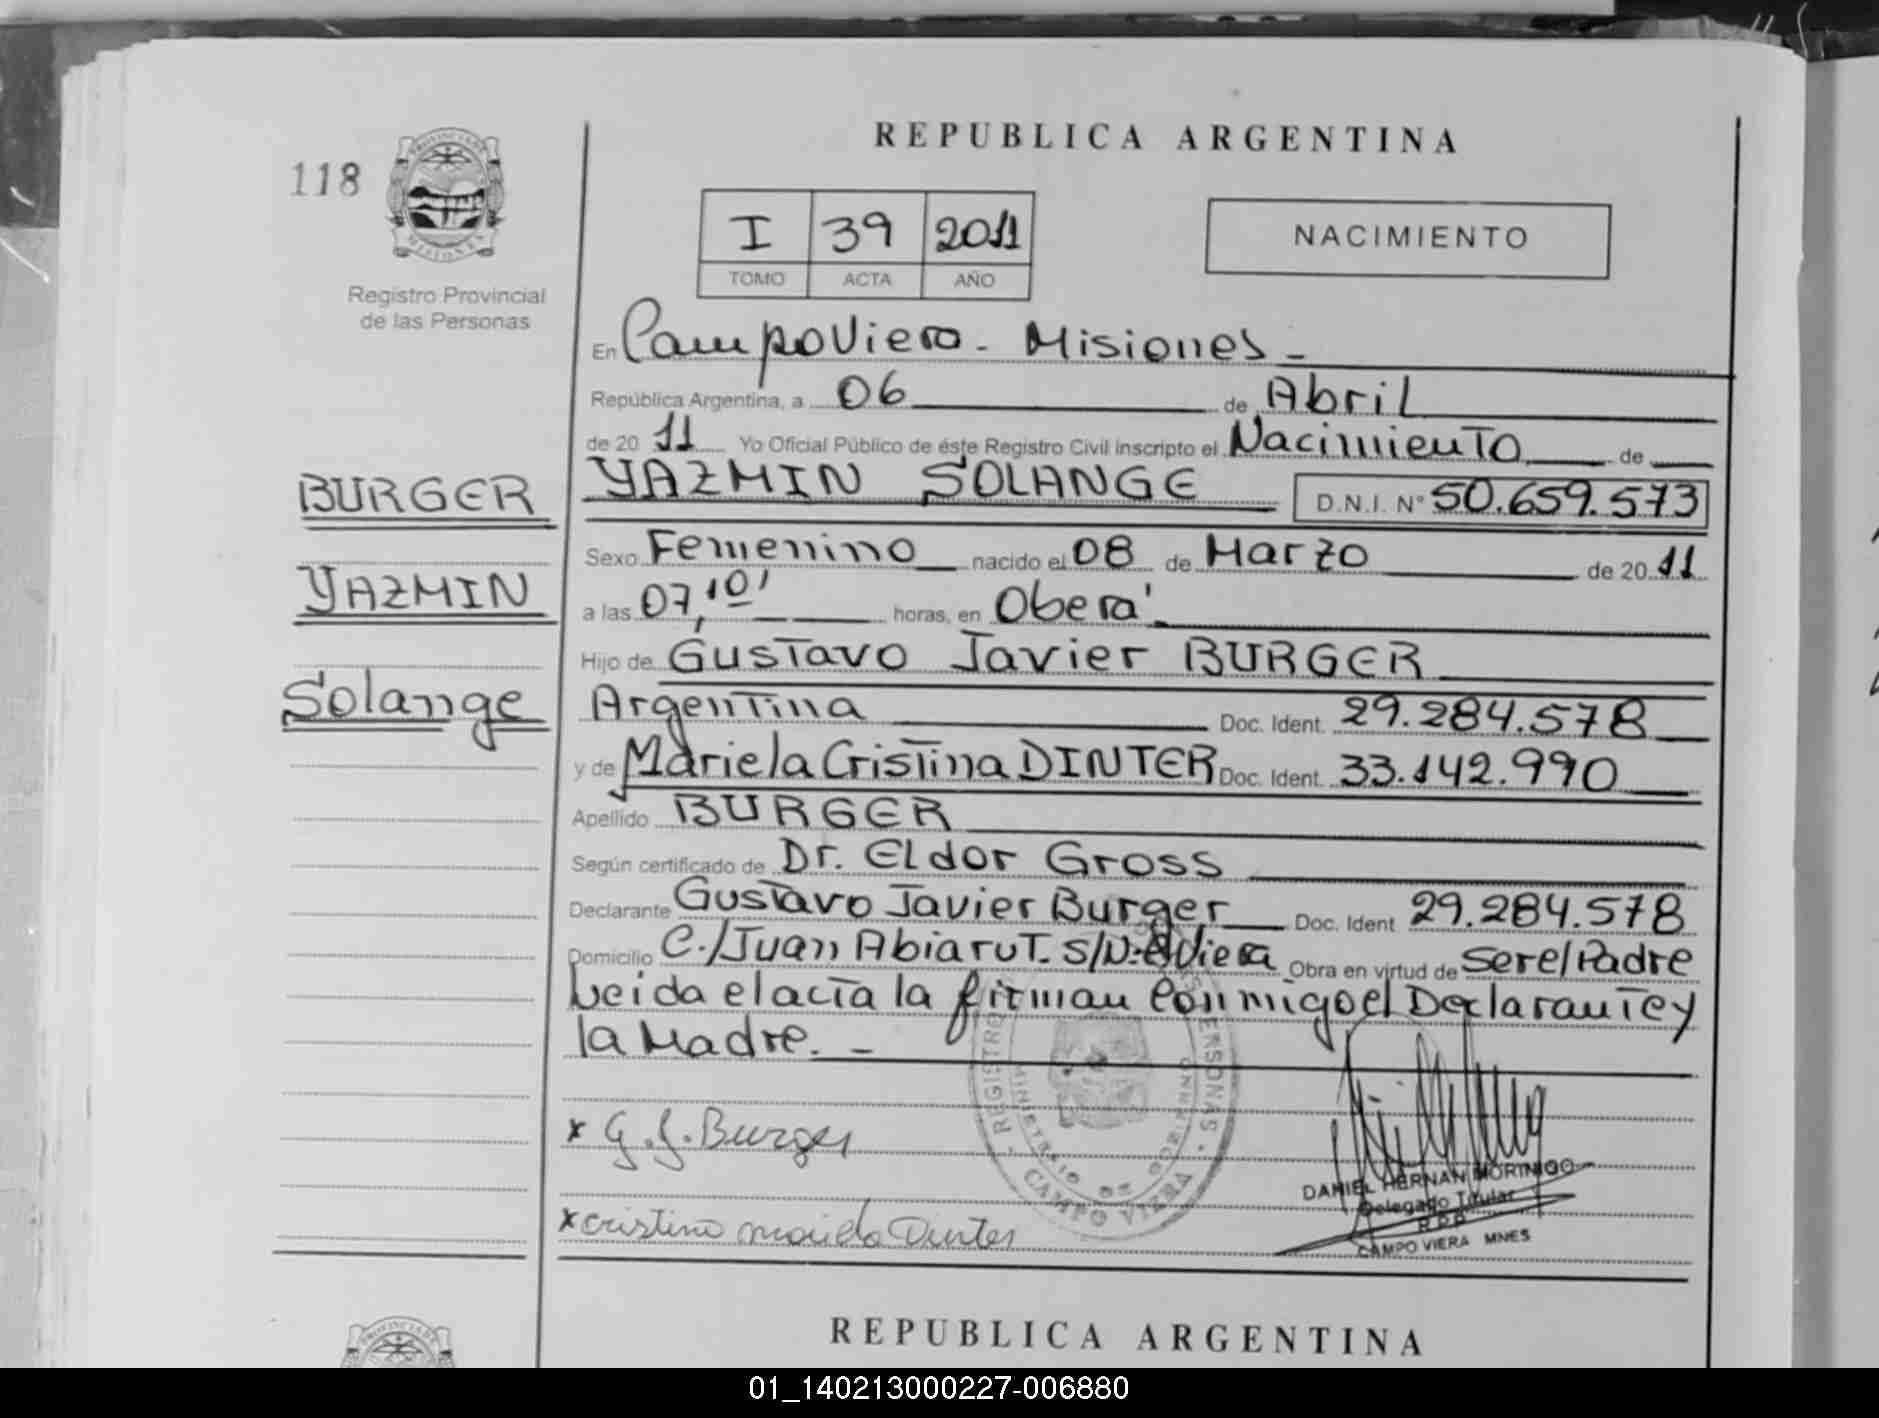 REPUBLICA ARGENTINA
118
PROVINCIA DE
MISIONES
Registro Provincial
de las Personas
I 39 2011
TOMO ACTA AÑO
NACIMIENTO
En Campo Viera - Misiones -
República Argentina, a 06 de Abril
de 2011 Yo Oficial Público de éste Registro Civil inscripto el Nacimiento de
BURGER
YAZMIN
Solange
YAZMIN SOLANGE D.N.I. N° 50.659.573
Sexo Femenino nacido el 08 de Marzo de 2011
a las 07,10' horas, en Obera'
Hijo de Gustavo Javier BURGER
Argentina Doc. Ident. 29.284.578
y de Mariela Cristina DINTER Doc. Ident. 33.142.990
Apellido BURGER
Según certificado de Dr. Eldor Gross
Declarante Gustavo Javier Burger Doc. Ident 29.284.578
Domicilio C./Juan Abiarut. S/N: Viera Obra en virtud de ser el Padre
Leida el acta la firman conmigo el Declarante y
la Madre. -
x G. J. Burger
x cristina mariela Dinter
REGISTRO PERSONAS
MINISTERIO DE GOBIERNO
CAMPO VIERA
DANIEL HERNAN MORINIGO
Delegado Titular
R.P.P.
CAMPO VIERA MNES
PROVINCIA DE
REPUBLICA ARGENTINA
01_140213000227-006880